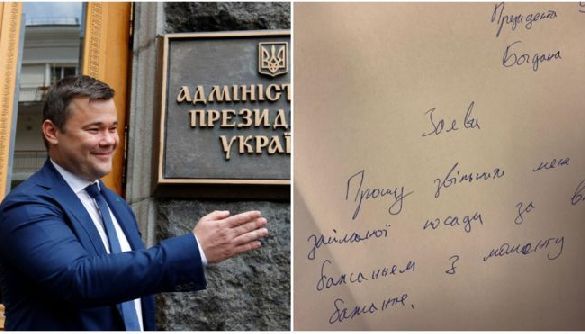 АДМІНІС
ПРЕЗИД
УКРАЇ
Президента
Богдана
Заява
Прошу звільнити мене
займаної посади за в
бажанням з моменту
бажання.